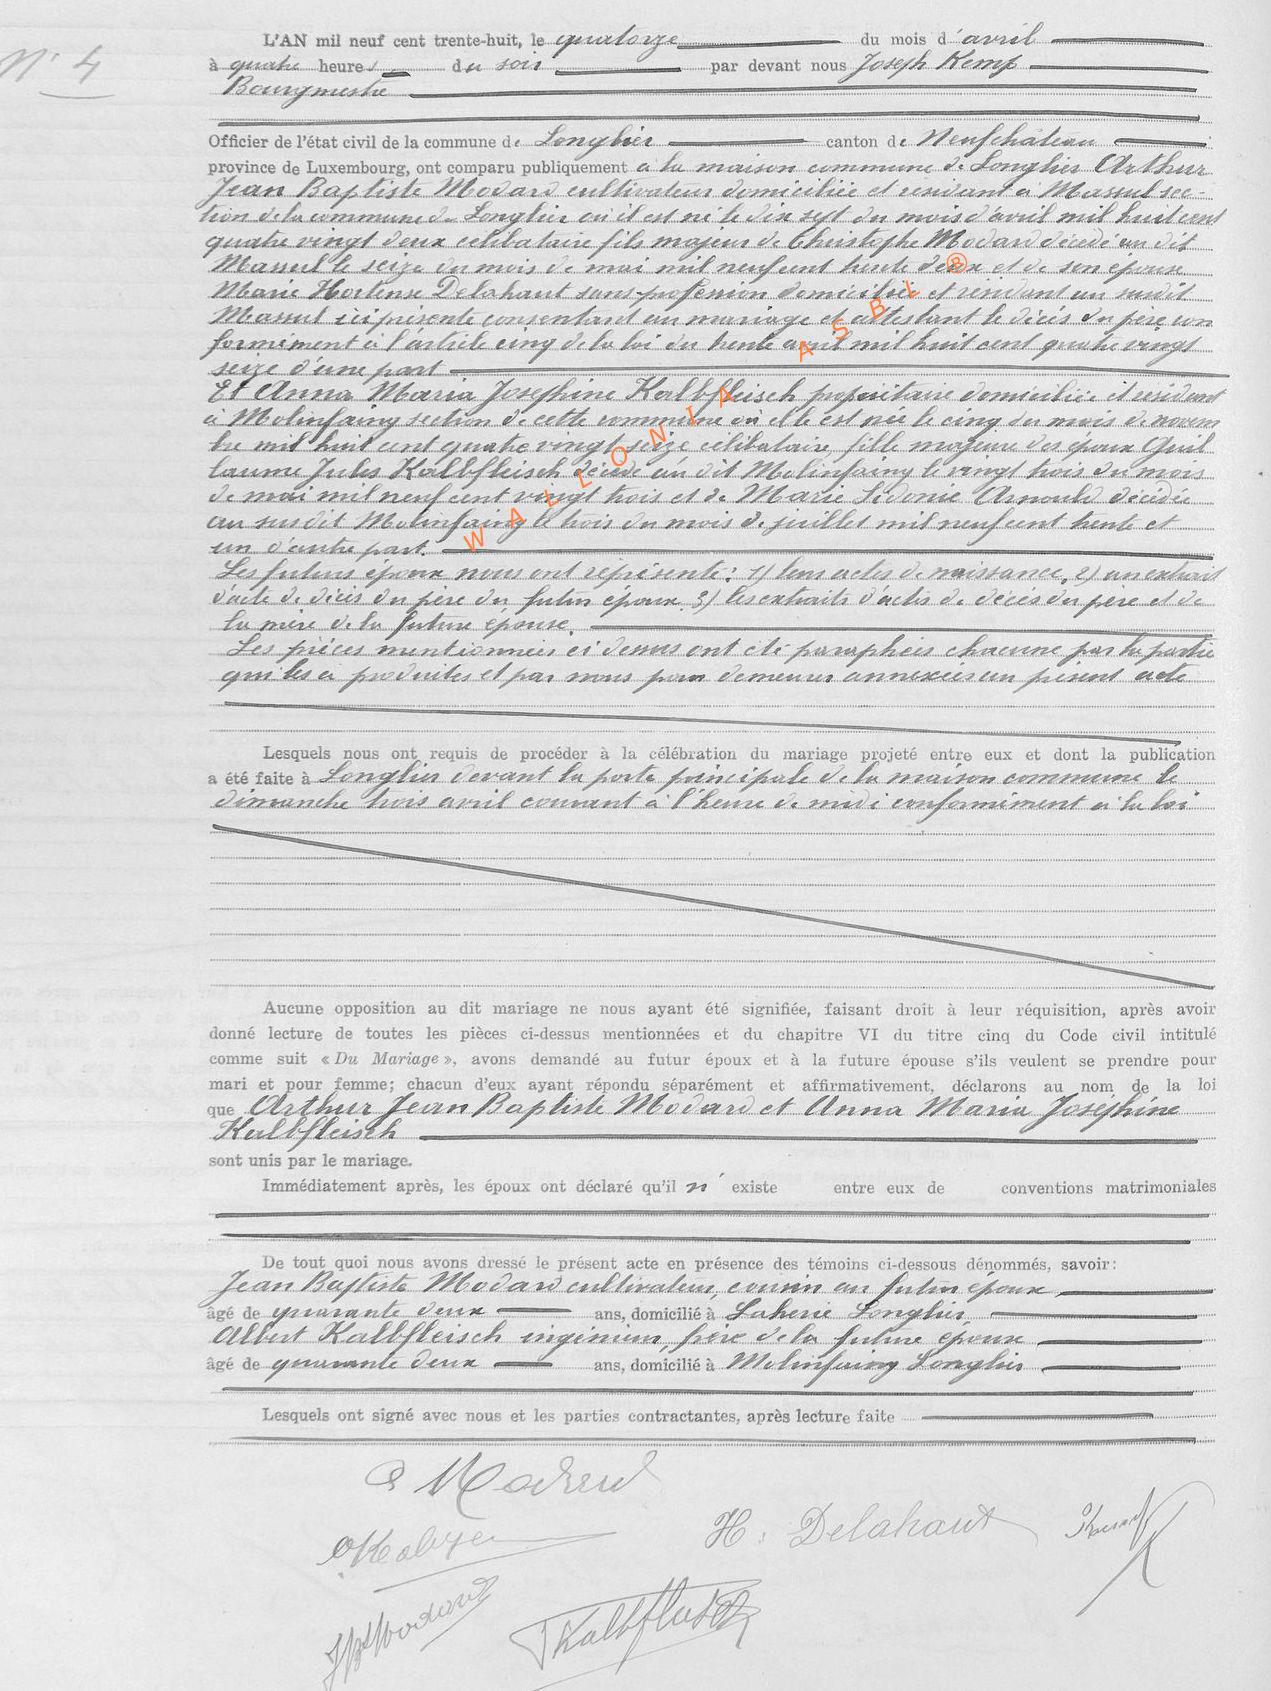 N° 4
L'AN mil neuf cent trente-huit, le quatorze du mois d'avril
à quatre heures du soir par devant nous Joseph Kemp
Bourgmestre
Officier de l'état civil de la commune de Longlier canton de Neufchâteau
province de Luxembourg, ont comparu publiquement à la maison commune de Longlier Arthur
Jean Baptiste Modard cultivateur domiciliée et résidant à Massul sec-
tion de la commune de Longlier où il est né le dix sept du mois d'avril mil huit cent
quatre vingt deux célibataire fils majeur de Christophe Modard décédé au dit
Massul le seize du mois de mai mil neuf cent trente deux et de son épouse
Marie Hortense Delahaut sans profession domiciliée et résidant au susdit
Massul ici présente consentant au mariage et attestant le décès du père con
formément à l'article cinq de la loi du trente avril mil huit cent quatre vingt
seize d'une part
Et Anna Maria Joséphine Kalbfleisch propriétaire domiciliée et résidant
à Molinfaing section de cette commune où elle est née le cinq du mois de novem
bre mil huit cent quatre vingt seize célibataire, fille majeure des époux Guil
laume Jules Kalbfleisch décédé au dit Molinfaing le vingt trois du mois
de mai mil neuf cent vingt trois et de Marie Sidonie Arnould décédée
au susdit Molinfaing le trois du mois de juillet mil neuf cent trente et
un d'autre part.
Les futurs époux nous ont représenté: 1) leurs actes de naissance, 2) un extrait
d'acte de décès du père du futur époux 3) les extraits d'actes de décès du père et de
la mère de la future épouse.
Les pièces mentionnées ci dessus ont été paraphées chacune par la partie
qui les a produites et par nous pour demeurer annexées au présent acte
Lesquels nous ont requis de procéder à la célébration du mariage projeté entre eux et dont la publication
a été faite à Longlier devant la porte principale de la maison commune le
dimanche trois avril courant à l'heure de midi conformément à la loi
Aucune opposition au dit mariage ne nous ayant été signifiée, faisant droit à leur réquisition, après avoir
donné lecture de toutes les pièces ci-dessus mentionnées et du chapitre VI du titre cinq du Code civil intitulé
comme suit « Du Mariage », avons demandé au futur époux et à la future épouse s'ils veulent se prendre pour
mari et pour femme; chacun d'eux ayant répondu séparément et affirmativement, déclarons au nom de la loi
que Arthur Jean Baptiste Modard et Anna Maria Joséphine
Kalbfleisch
sont unis par le mariage.
Immédiatement après, les époux ont déclaré qu'il n' existe entre eux de conventions matrimoniales
De tout quoi nous avons dressé le présent acte en présence des témoins ci-dessous dénommés, savoir:
Jean Baptiste Modard cultivateur, cousin au futur époux
âgé de quarante deux ans, domicilié à Laherie Longlier,
Albert Kalbfleisch ingénieur, frère de la future épouse
âgé de quarante deux ans, domicilié à Molinfaing Longlier
Lesquels ont signé avec nous et les parties contractantes, après lecture faite
A Modard
H. Delahaut
JBModard
Kalbfleisch
WALLONIA ASBL ®